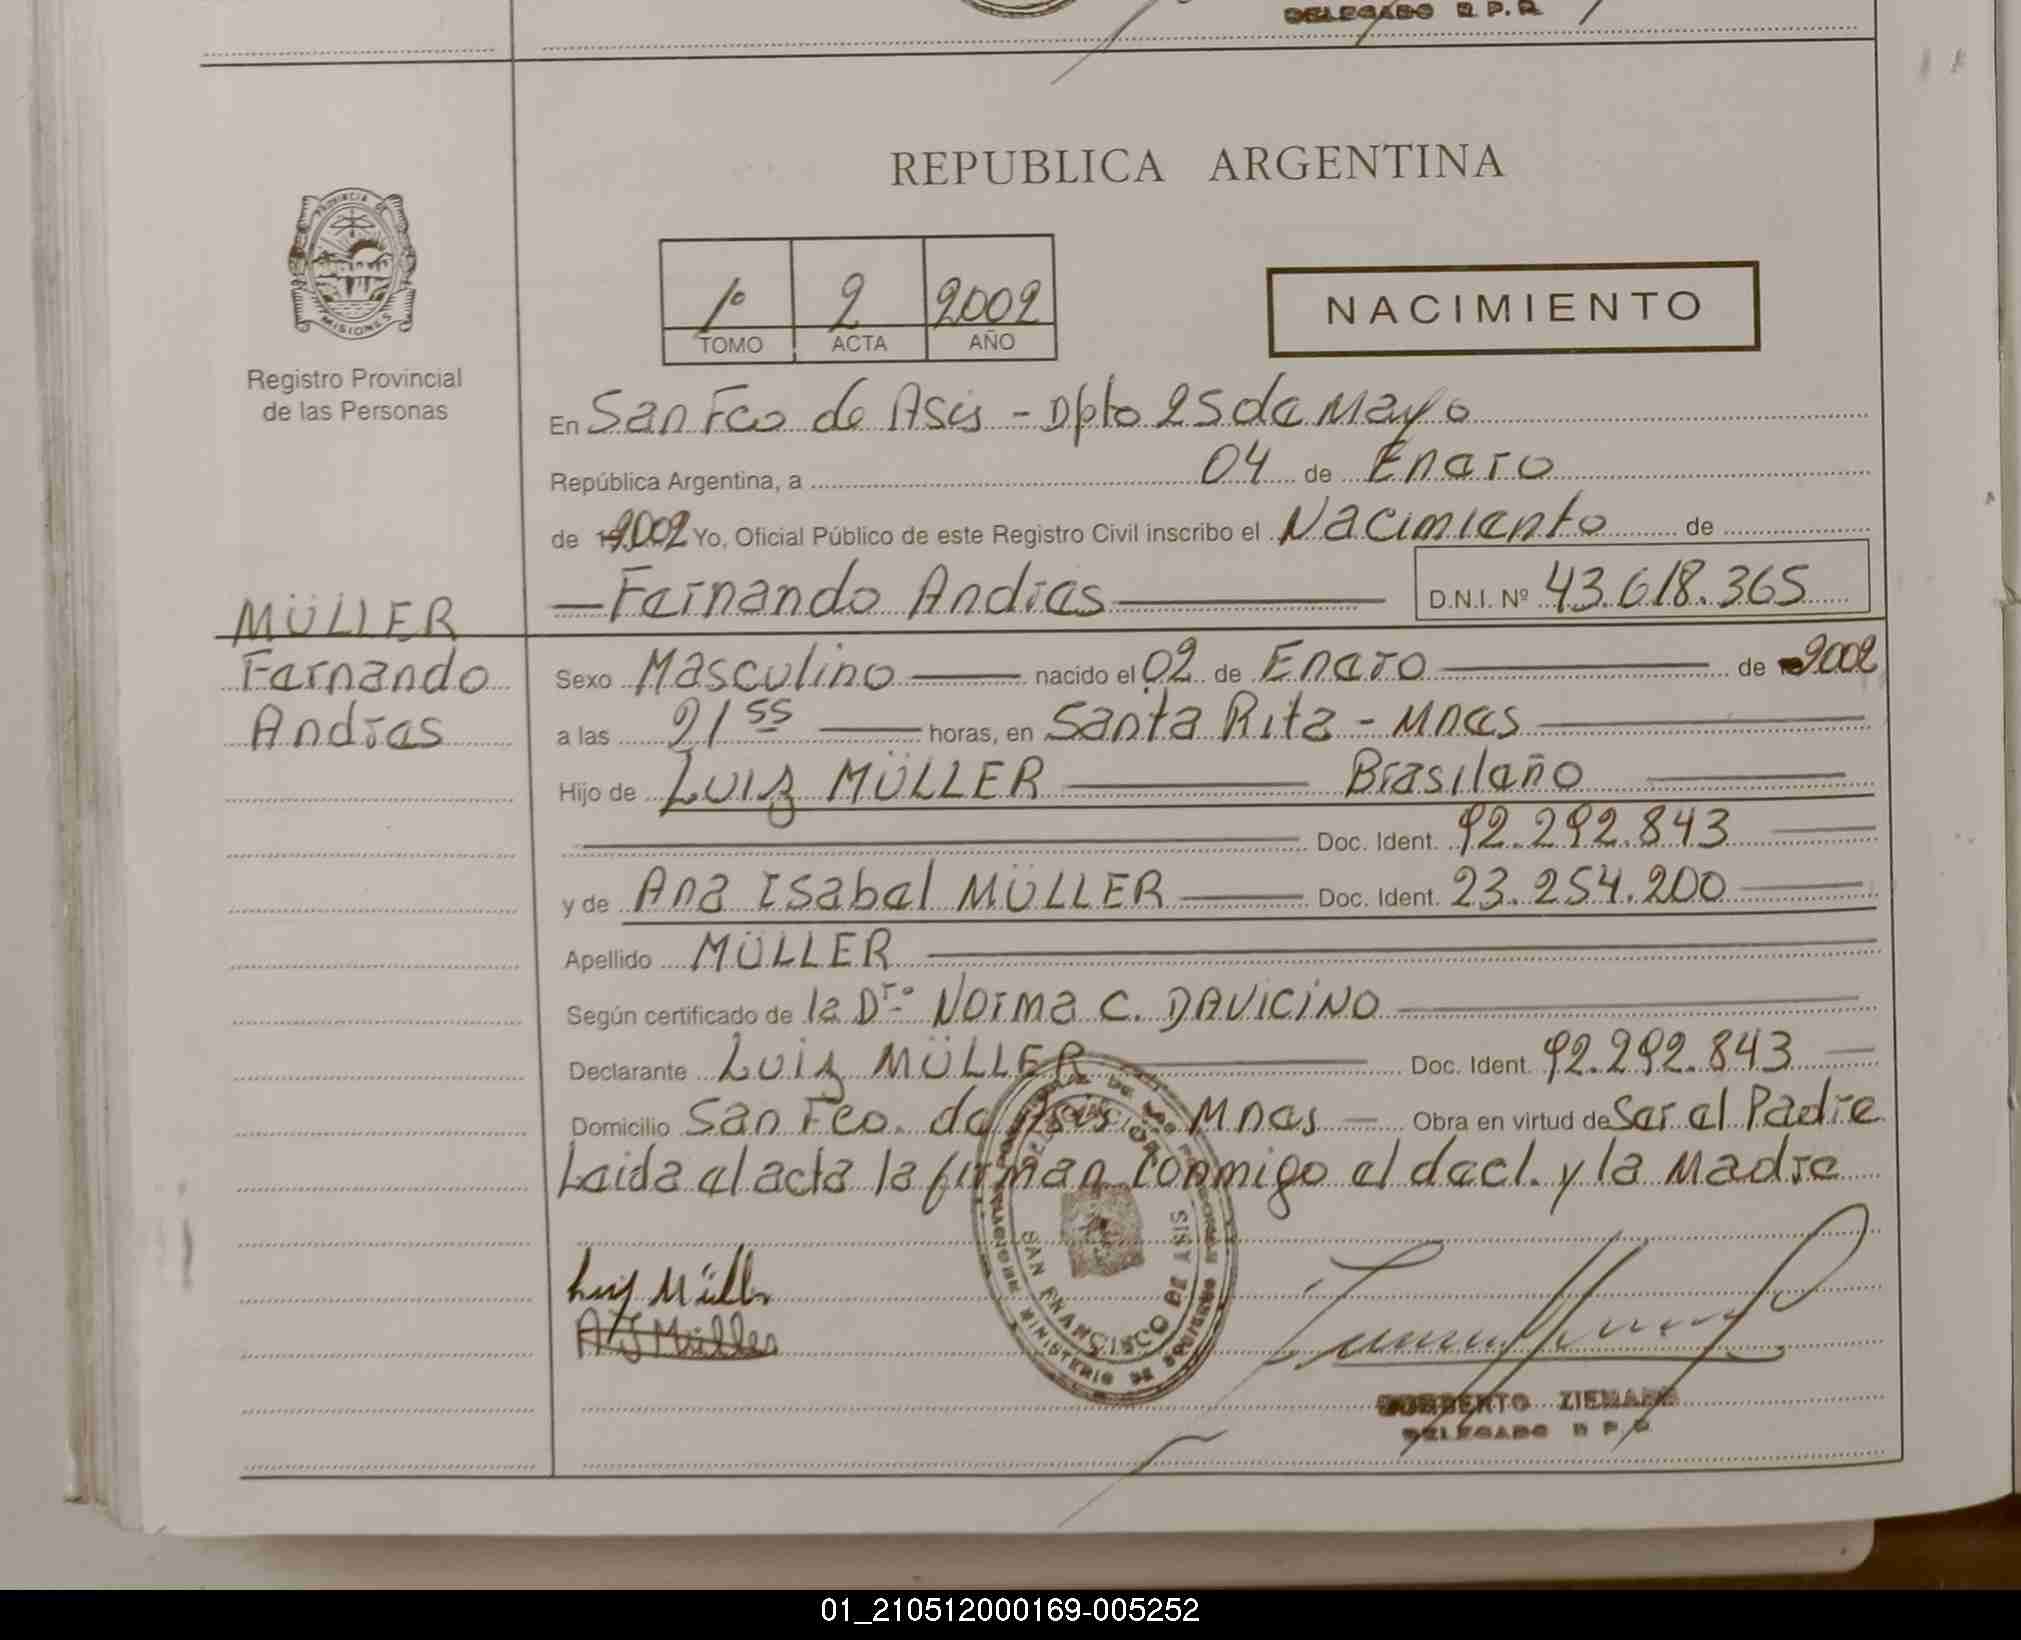 DELEGADO R.P.P.
REPUBLICA ARGENTINA
PROVINCIA DE
MISIONES
Registro Provincial
de las Personas
1º 2 2002
TOMO ACTA AÑO
NACIMIENTO
En San Fco de Asis - Dpto 25 de Mayo
República Argentina, a 04 de Enero
de 2002 Yo, Oficial Público de este Registro Civil inscribo el Nacimiento de
Fernando Andres D.N.I. Nº 43.618.365
MÜLLER
Fernando
Andres
Sexo Masculino nacido el 02 de Enero de 2002
a las 21 55 horas, en Santa Rita - Mnes
Hijo de Luiz MÜLLER Brasileño
Doc. Ident. 92.292.843
y de Ana Isabel MÜLLER Doc. Ident. 23.254.200
Apellido MÜLLER
Según certificado de la Dra. Norma C. DAVICINO
Declarante Luiz MÜLLER Doc. Ident. 92.292.843
Domicilio San Fco. de Asis Mnes Obra en virtud de Ser el Padre
Leida el acta la firman conmigo el decl. y la Madre
Luiz Müller
A I Müller
SAN FRANCISCO DE ASIS
MINISTERIO DE GOBIERNO
NORBERTO ZIEMANN
DELEGADO R.P.P.
01_210512000169-005252